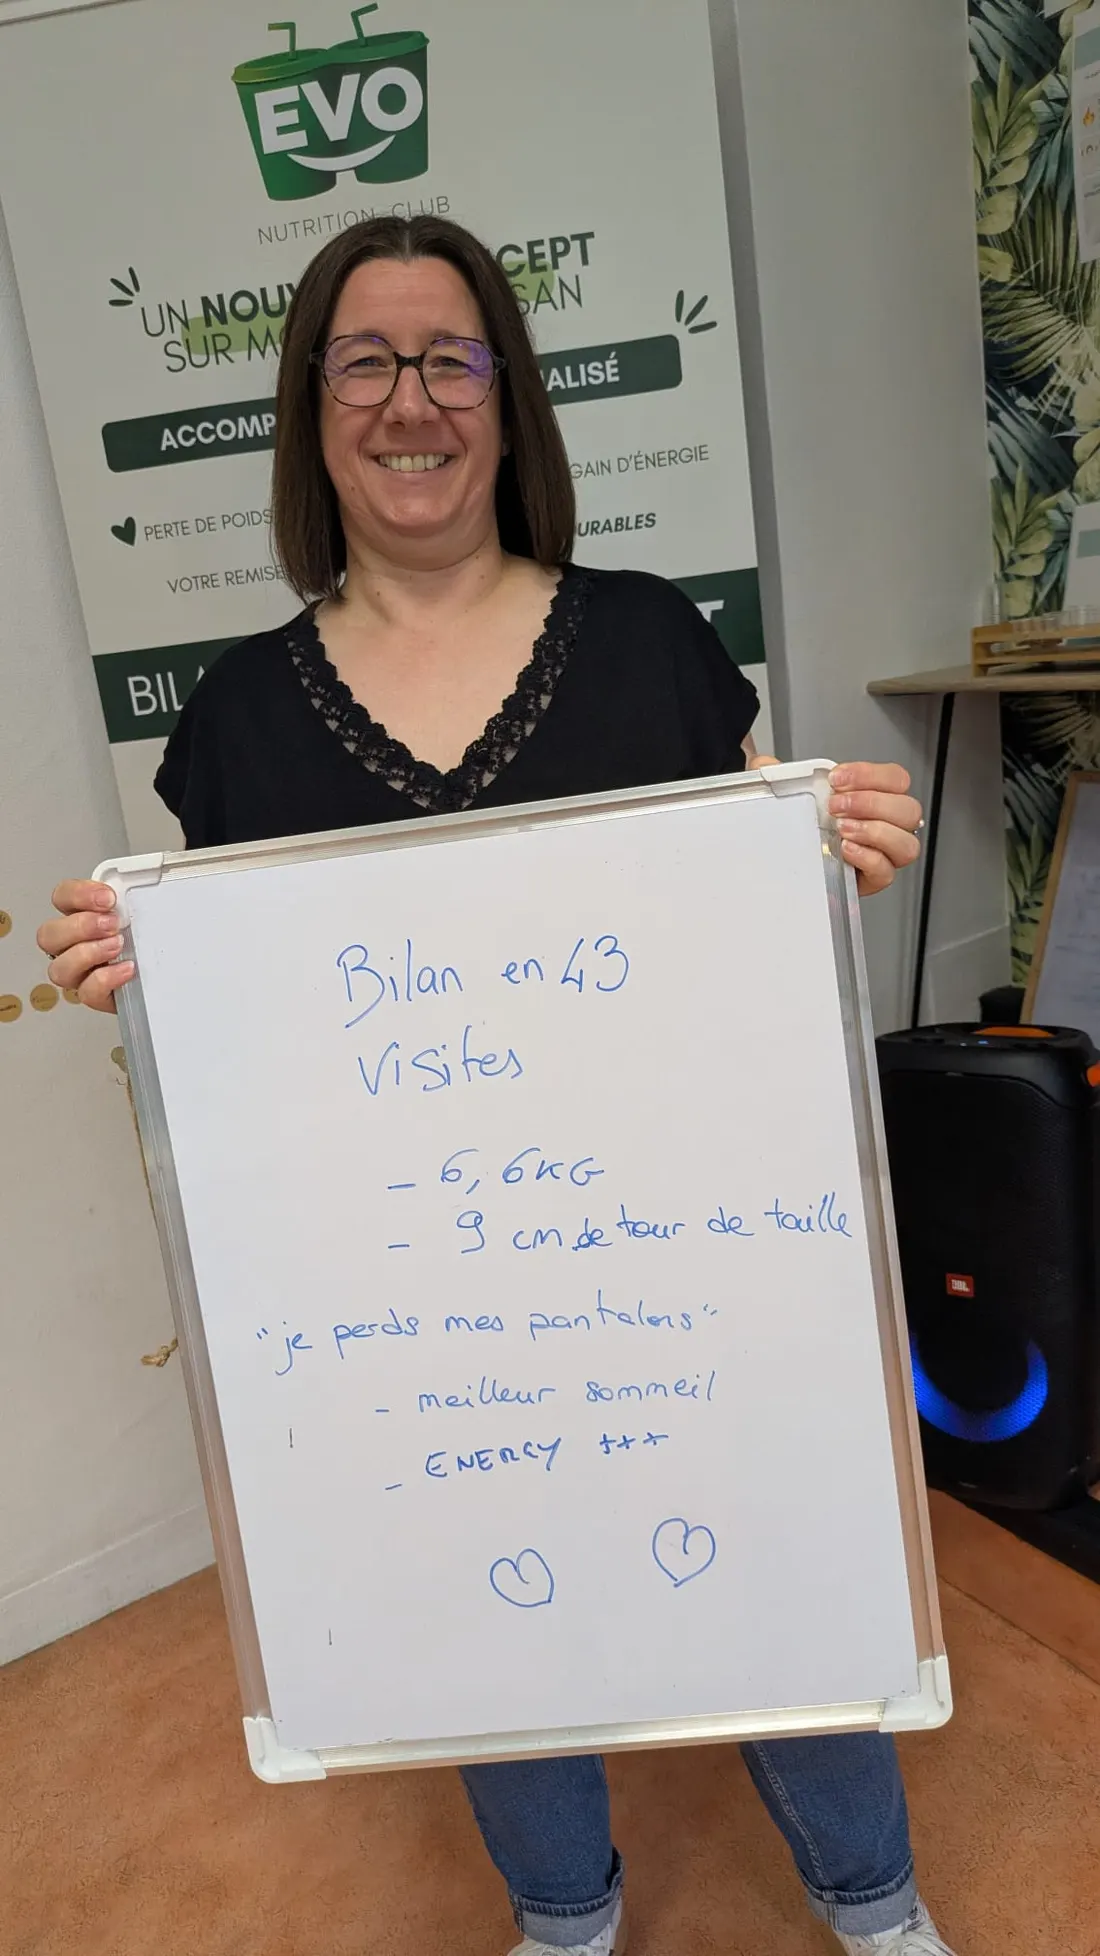 EVO
NUTRITION CLUB
UN NOUV CEPT
SUR MO SAN
ACCOMP ALISÉ
PERTE DE POIDS GAIN D'ÉNERGIE
DURABLES
VOTRE REMISE
BIL T
Bilan en 43
visites
- 6,6KG
- 9 cm de tour de taille
"je perds mes pantalons"
- meilleur sommeil
- ENERGY +++
JBL